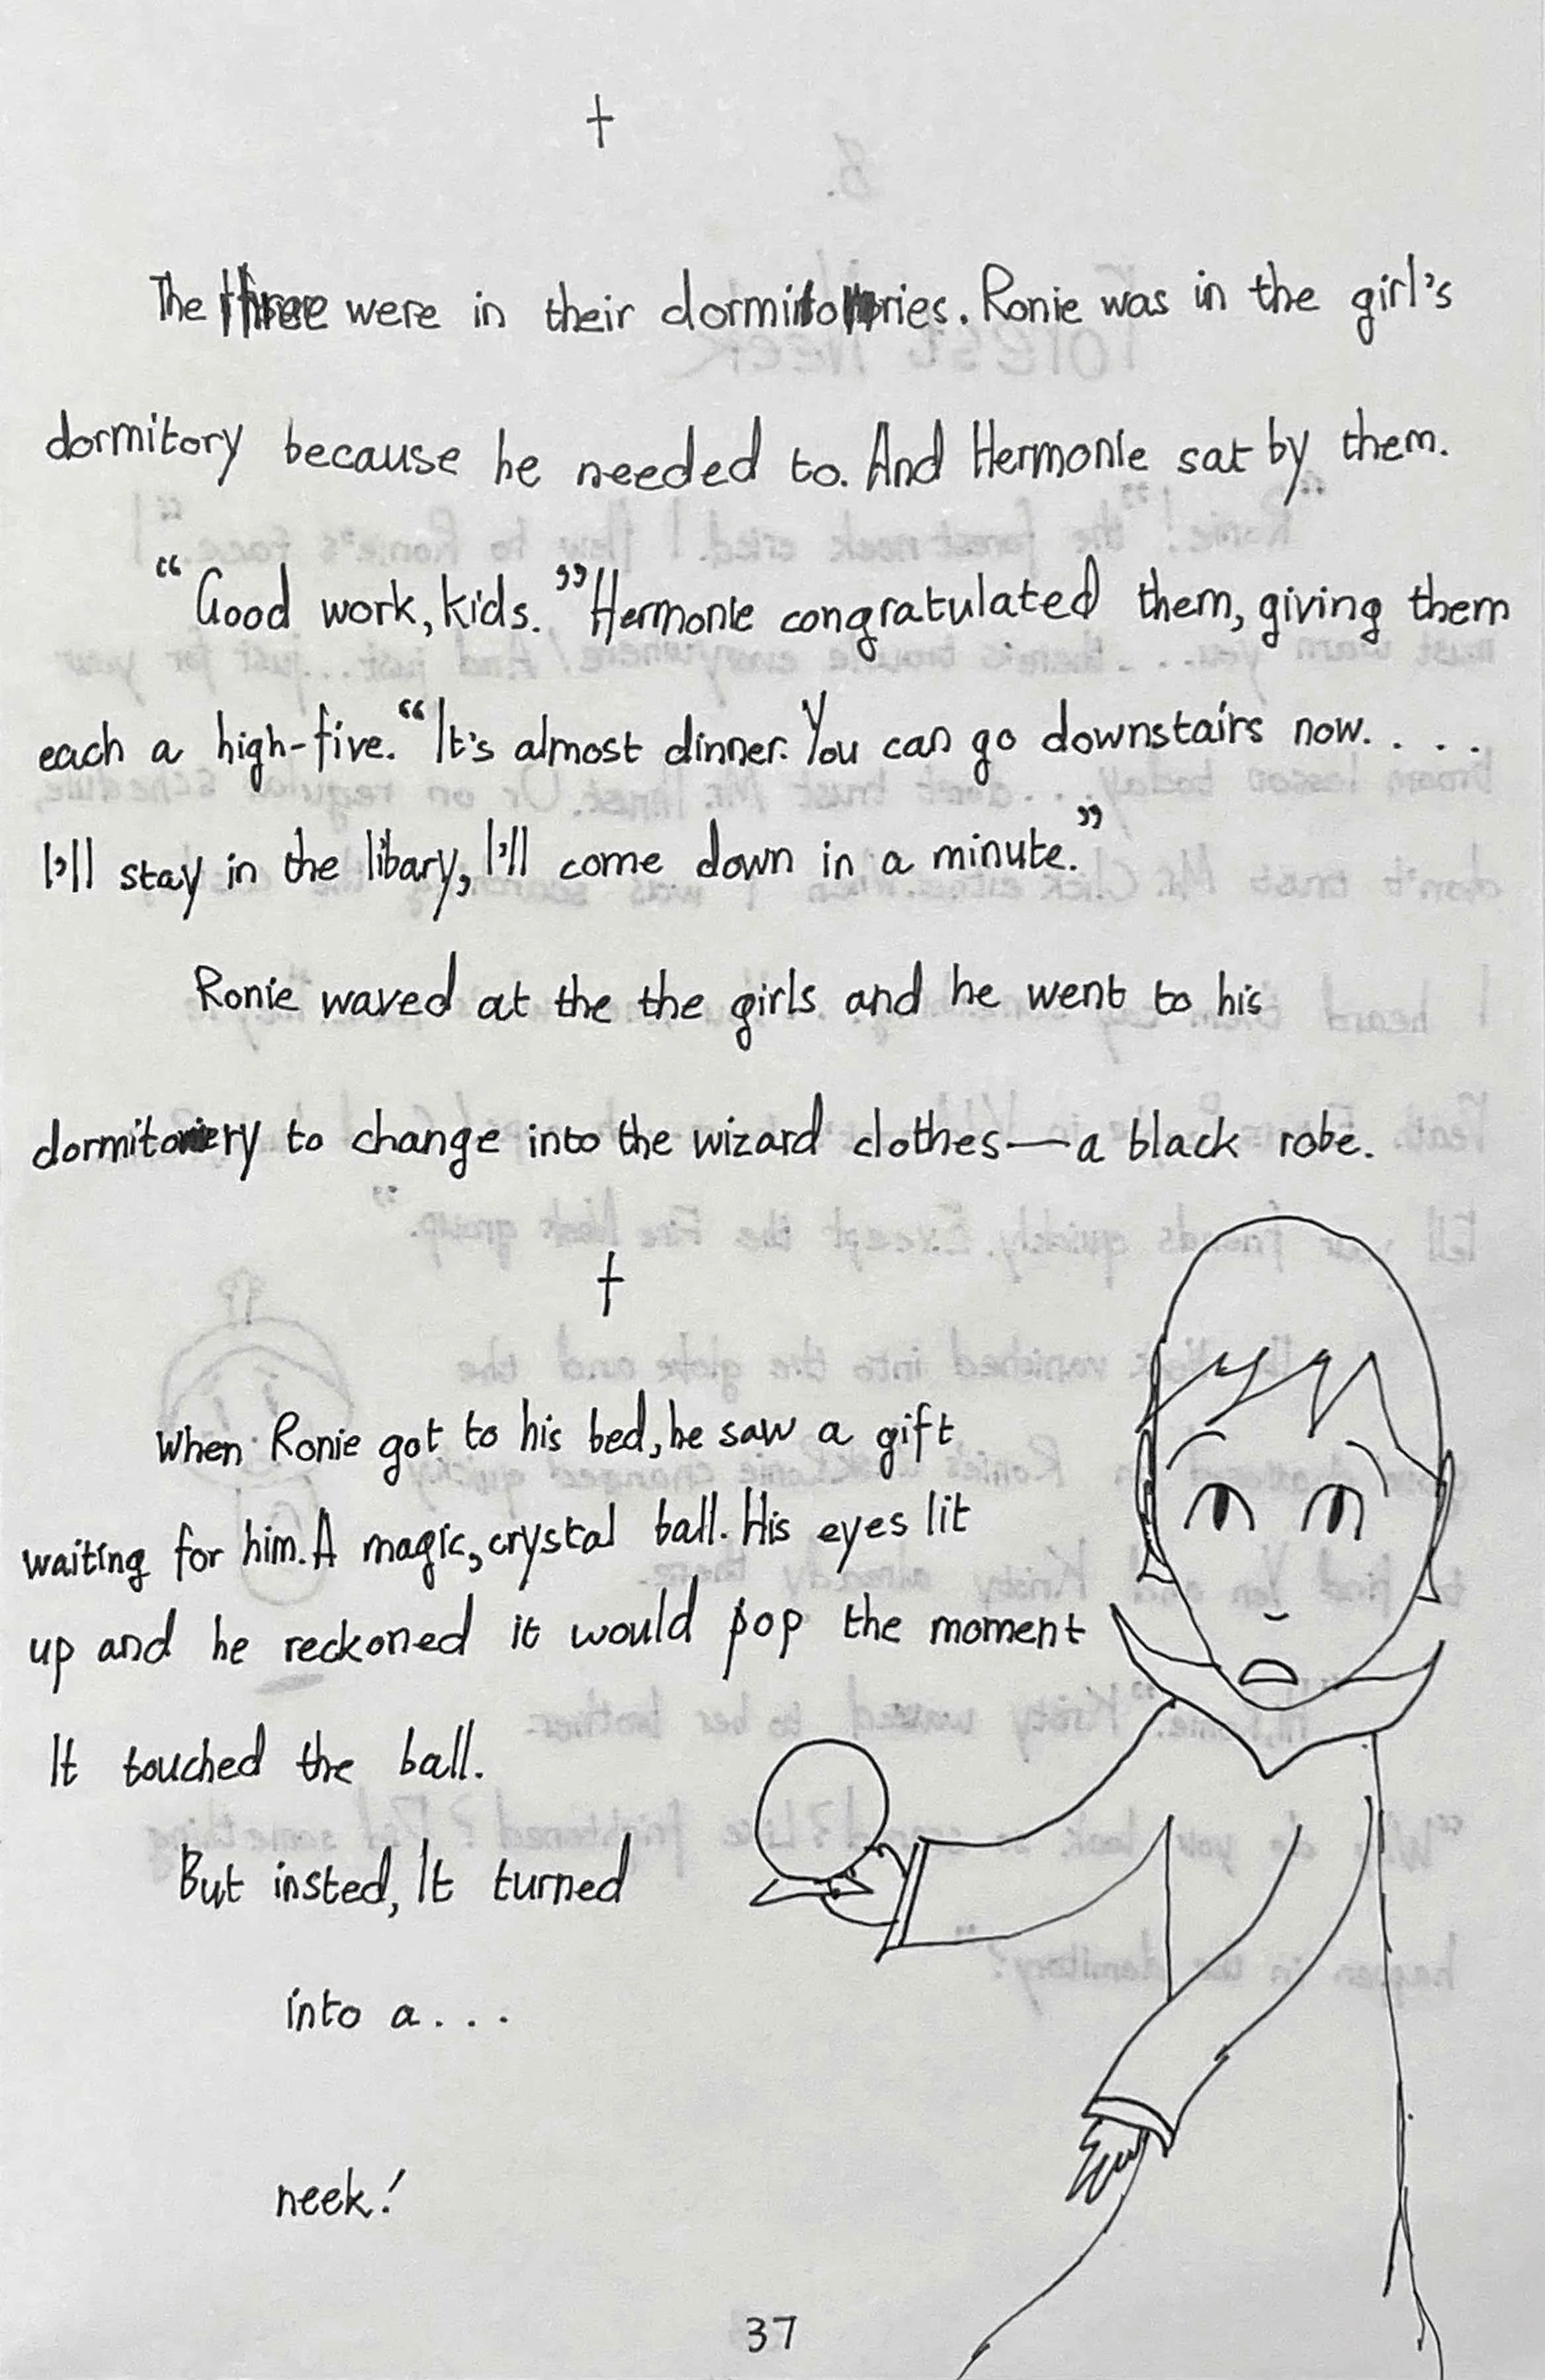 †
The three were in their dormitories. Ronie was in the girl's
dormitory because he needed to. And Hermonie sat by them.
“Good work, kids.” Hermonie congratulated them, giving them
each a high-five. “It's almost dinner. You can go downstairs now. . . .
I'll stay in the libary, I'll come down in a minute.”
Ronie waved at the the girls and he went to his
dormitory to change into the wizard clothes—a black robe.
†
When Ronie got to his bed, he saw a gift
waiting for him. A magic, crystal ball. His eyes lit
up and he reckoned it would pop the moment
It touched the ball.
But insted, It turned
into a . . .
neek!
37